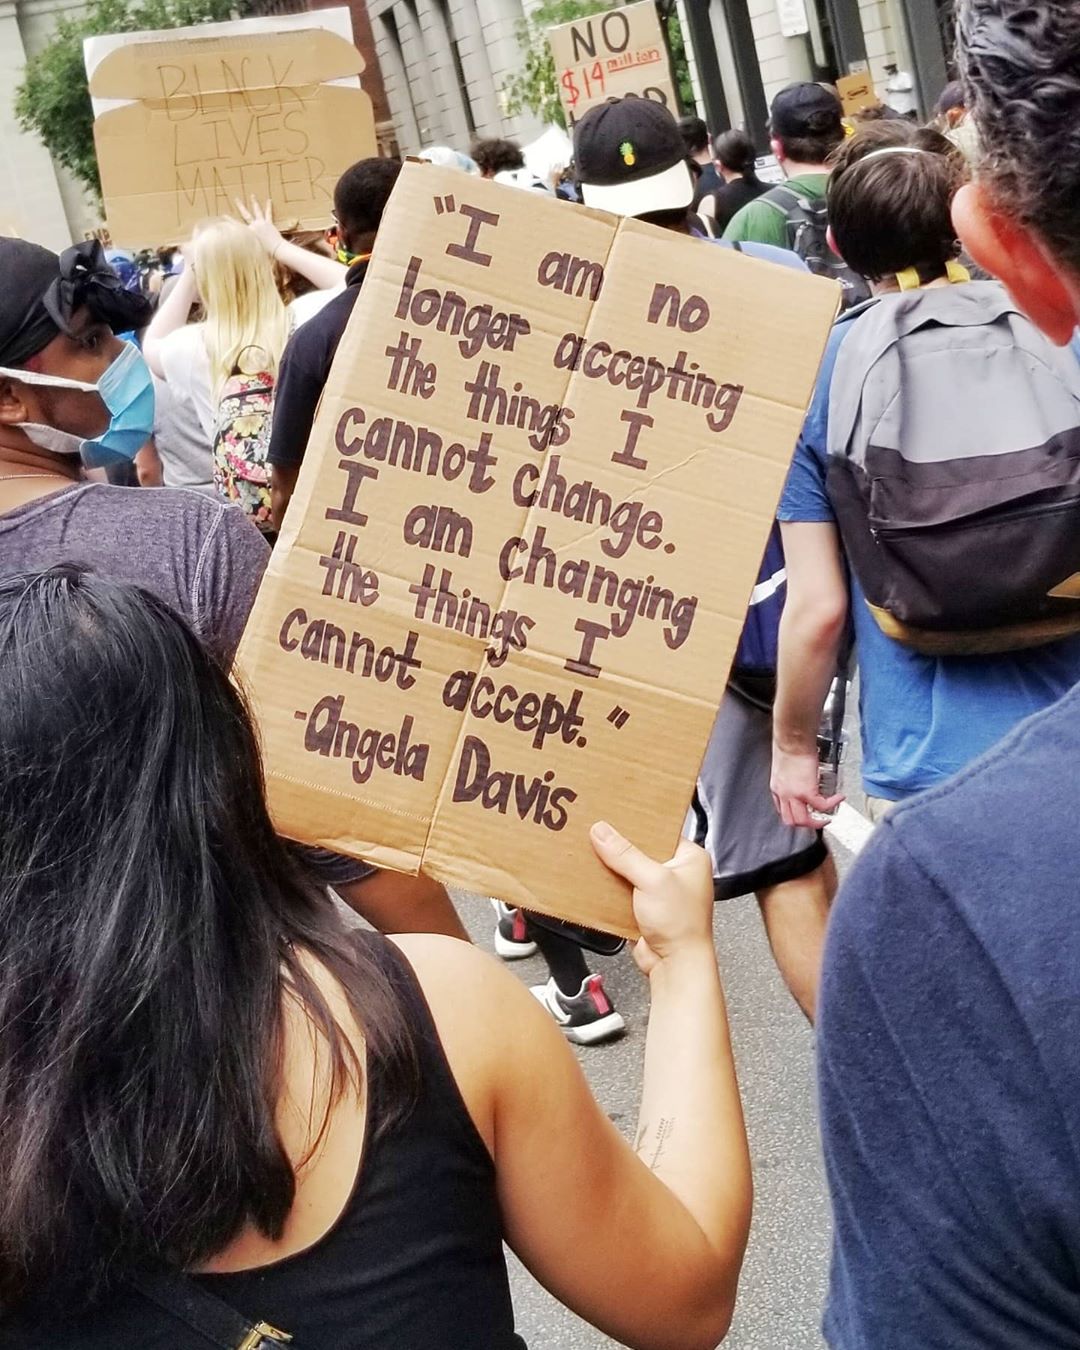 BLACK
LIVES
MATTER
NO
$14 million
"I am no
longer accepting
the things I
cannot change.
I am changing
the things I
cannot accept."
-Angela Davis